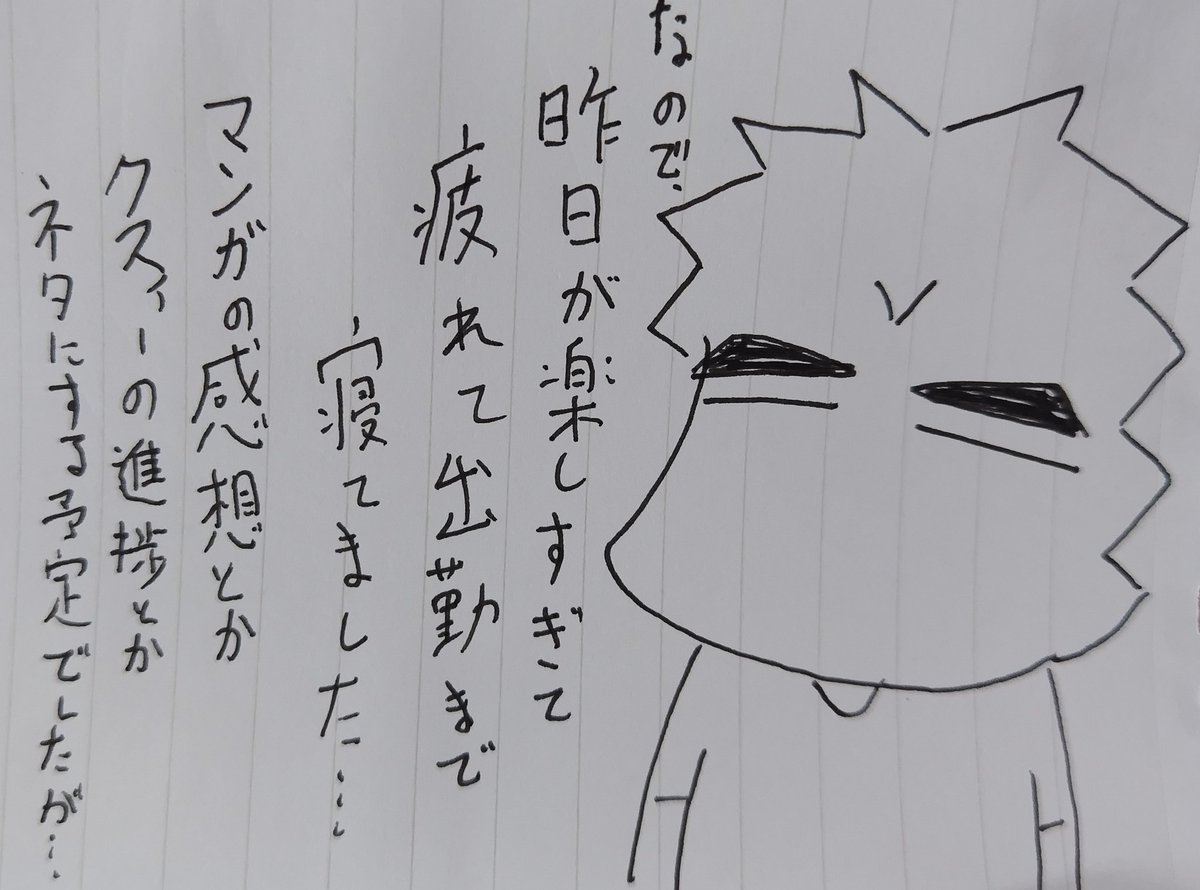 なので、
昨日が楽しすぎて
疲れて出勤まで
寝てました…
マンガの感想とか
クスィーの進捗とか
ネタにする予定でしたが…